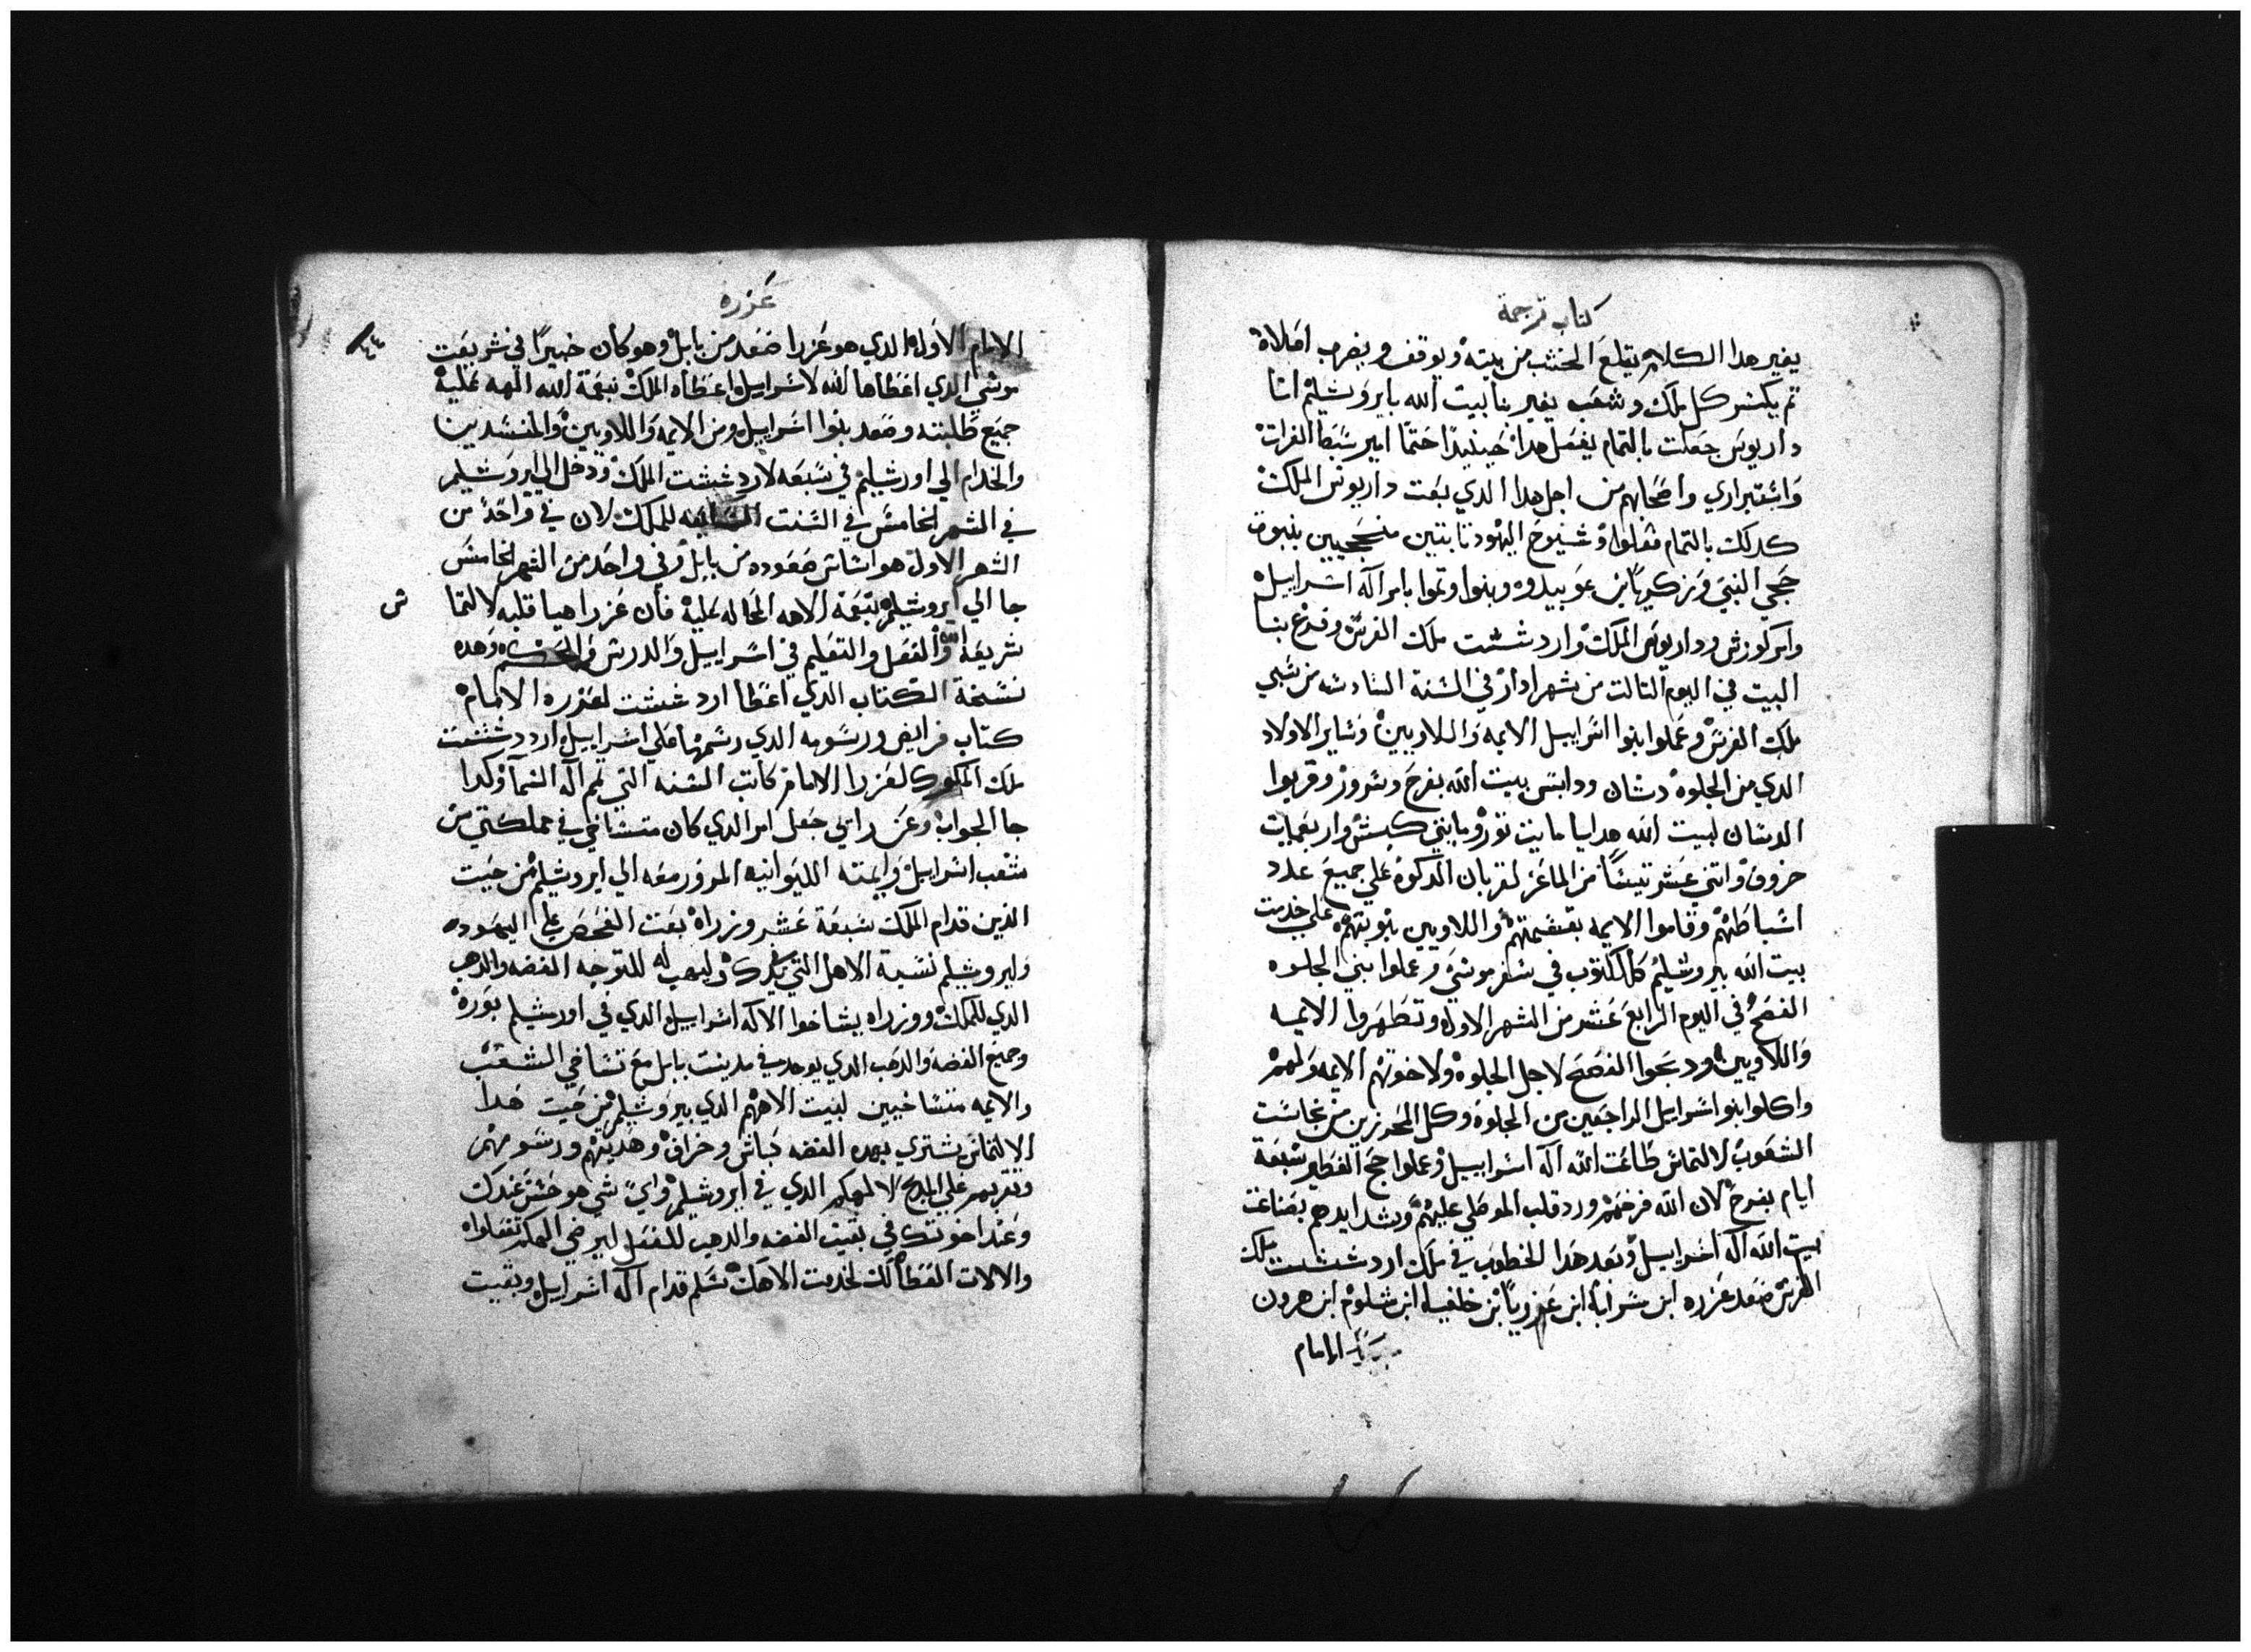 كتاب ترجمة
يغير هدا الكلام يتلع الخشب من بيته ويوقف ويضرب
تم يكسر كل ملك وشعب يغير بنا بيت الله بايروشليم انا
داريوس جعلت بالتمام يفعل هدا حينيدا حتما امير شبط الفرات
واصحابهم من اجل هدا الدي بعت داريوش الملك
كدلك بالتمام فعلوا وشيوخ اليهود تابتين منجحيين بنبوة
حجي النبي وزكريا بن عوبيدوه وبنوا وتموا بامر اله اشراييل
وامر كورش وداريوس الملك وارد ششت ملك الفرش وفدغ بنا
البيت في اليوم التالت من شهر ادار في السنة السادسه من شبي
ملك الفرش وعملوا بنوا اشراييل الايمه واللاويين وشاير الاولاد
الدي من الجلوه دشان ودابش بيت الله بفرح وشرور وقربوا
الدشان لبيت الله هدايا مايت تور ومايتي كبش واربعمايت
خروف واتني عشر تيشا من الماعز لقربان الدكوة علي جميع عدد
اشباطهم وقاموا الايمه بقشمتهم واللاويين بنوبتهم علي خدمت
بيت الله بيروشليم كالمكتوب في شفر موشي وعملوا بني الجلوه
الفصح في اليوم الرابع عشر من الشهر الاول وتطهروا الايمه
واللاويين ودبحوا الفصح لاجل الجلوة ولاخوتهم الايمه ولهم
واكلوا بنوا اشراييل الراجعين من الجلوة وكل المحرزين من نجاشت
الشعوب لالتماش طاعت الله اله اشراييل وعملوا حج الفطير شبعة
ايام بفرح لان الله فرحهم ورد قلب الموطلي عليهم وشد ايديهم بصناعت
بيت الله اله اشراييل وبعد هدا الخطوب في ملك ارد ششت ملك
الفرش صعد عزره ابن شرايا ابن عزريا بن خلفيا ابن شلوم ابن هرون
الامام
عزره
٤٤
الامام الاول الدي هو عزرا صعد من بابل وهو كان خبيرا في شريعت
موشي الدي اعطاها الله لاشراييل واعطاه الملك بنعمة الله الهه عليه
جميع طلبته وصعد بنوا اشراييل ومن الايمه واللاويين والمنشدين
والخدام الي اورشليم في شبعه لارد ششت الملك ودخل الي ايروشليم
في الشهر الخامش في الشنت الشابعه للملك لان في واحد من
الشهر الاول هو اشاش صعوده من بابل وفي واحد من الشهر الخامش
جا الي ايروشليم بنعمة الاهه الحاله عليه فان عزرا هيا قلبه لالتما ش
شريعة الله والفعل والتعليم في اشراييل والدرش والحكم وهده
نشخة الكتاب الدي اعطا ارد ششت لعزره الامام
كتاب فرايض ورشومه الدي رشمها علي اشراييل ارد ششت
ملك الملوك لعزرا الامام كاتب الشنه التي لهم اله الشما وكدا
جا الجواب وعن رايي جعل امر الدي كان متشاخي في مملكتي من
شعب اشراييل وايمته الليوانيه المرور معه الي ايروشليم من حيت
الدين قدام الملك شبعة عشر وزراه بعت الفحص علي اليهوده
وايروشليم نشبة الاهل التي بيدك وليهب له للتوجه الفضه والدهب
الدي للملك ووزراه يشاخوا الاله اشراييل الدي في اورشليم بورة
وجميع الفضه والدهب الدي يوجد في مدينت بابل مع تشاخي الشعب
والايمه متشاخيين لبيت الاههم الدي بيروشليم من حيت هدا
الالتماش يشتري بهده الفضه كباش وخراف وهديتهم ورشومهم
وتقربهم علي المدبح لالهكم الدي في ايروشليم واي شي هو حشن عندك
وعند اخوتك في بقيت الفضه والدهب للفعل ليرضي الهكم تفعلواه
والالات القطالك لخدمت الاهك تشلم قدام اله اشراييل وبقيت